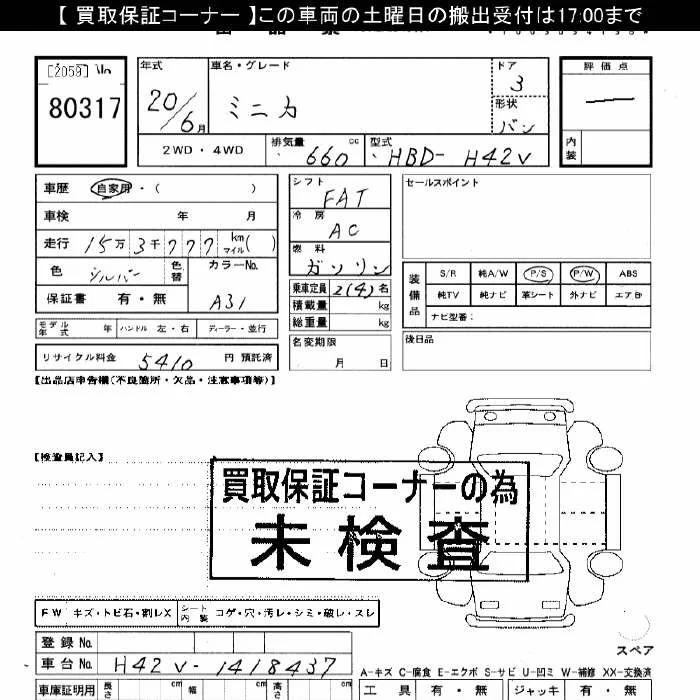 【 買取保証コーナー 】この車両の土曜日の搬出受付は17:00まで
[2059] No.
80317
年式
20/6月
車名・グレード
ミニカ
ドア
3
形状
バン
評価点
内装
2WD・4WD
排気量
660 cc
型式
HBD- H42V
車歴 自家用・( )
車検 年 月
走行 15万3千777 km マイル( )
色 シルバー 色替
カラーNo.
A31
保証書 有・無
モデル年式 年 ハンドル 左・右 ディーラー・並行
リサイクル料金 5410 円 預託済
シフト
FAT
冷房
AC
燃料
ガソリン
乗車定員 2(4) 名
積載量 kg
総重量 kg
名変期限
月 日
セールスポイント
装備品
S/R 純A/W P/S P/W ABS
純TV 純ナビ 革シート 外ナビ エアB
ナビ型番:
後日品
【出品店申告欄(不良箇所・欠品・注意事項等)】
【検査員記入】
買取保証コーナーの為
未検査
FW キズ・トビ石・割レX シート内装 コゲ・穴・汚レ・シミ・破レ・スレ
登録No.
車台No. H42V-1418437
車庫証明用 長さ cm 幅 cm 高さ cm
スペア
A-キズ C-腐食 E-エクボ S-サビ U-凹ミ W-補修 XX-交換済
工具 有・無 ジャッキ 有・無